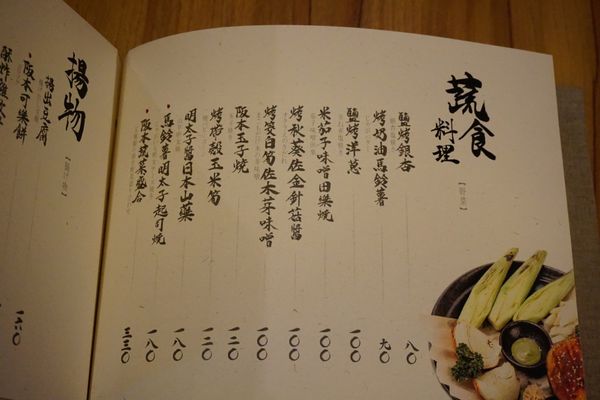 蔬食
料理
【野菜】
鹽烤銀杏 八〇
烤奶油馬鈴薯 九〇
鹽烤洋蔥 一〇〇
米茄子味噌田樂燒 一〇〇
烤秋葵佐金針菇醬 一〇〇
烤筊白筍佐木芽味噌 一〇〇
阪本玉子燒 一二〇
烤帶殼玉米筍 一二〇
明太子醬日本山藥 一八〇
馬鈴薯明太子起司燒 一八〇
阪本蔬菜盛合 三三〇
揚物
【揚げ物】
揚出豆腐
阪本可樂餅 一六〇
酥炸